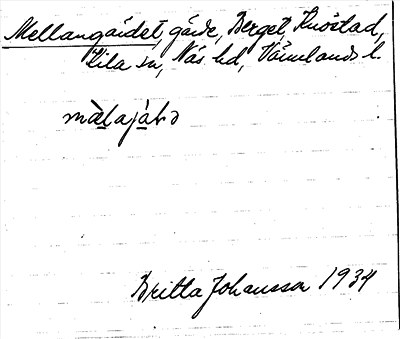 Mellangärdet, gärde, Berget, Knöstad,
Kila sn, Näs hd, Värmlands l.
màlajáʈə
Britta Johansson 1934